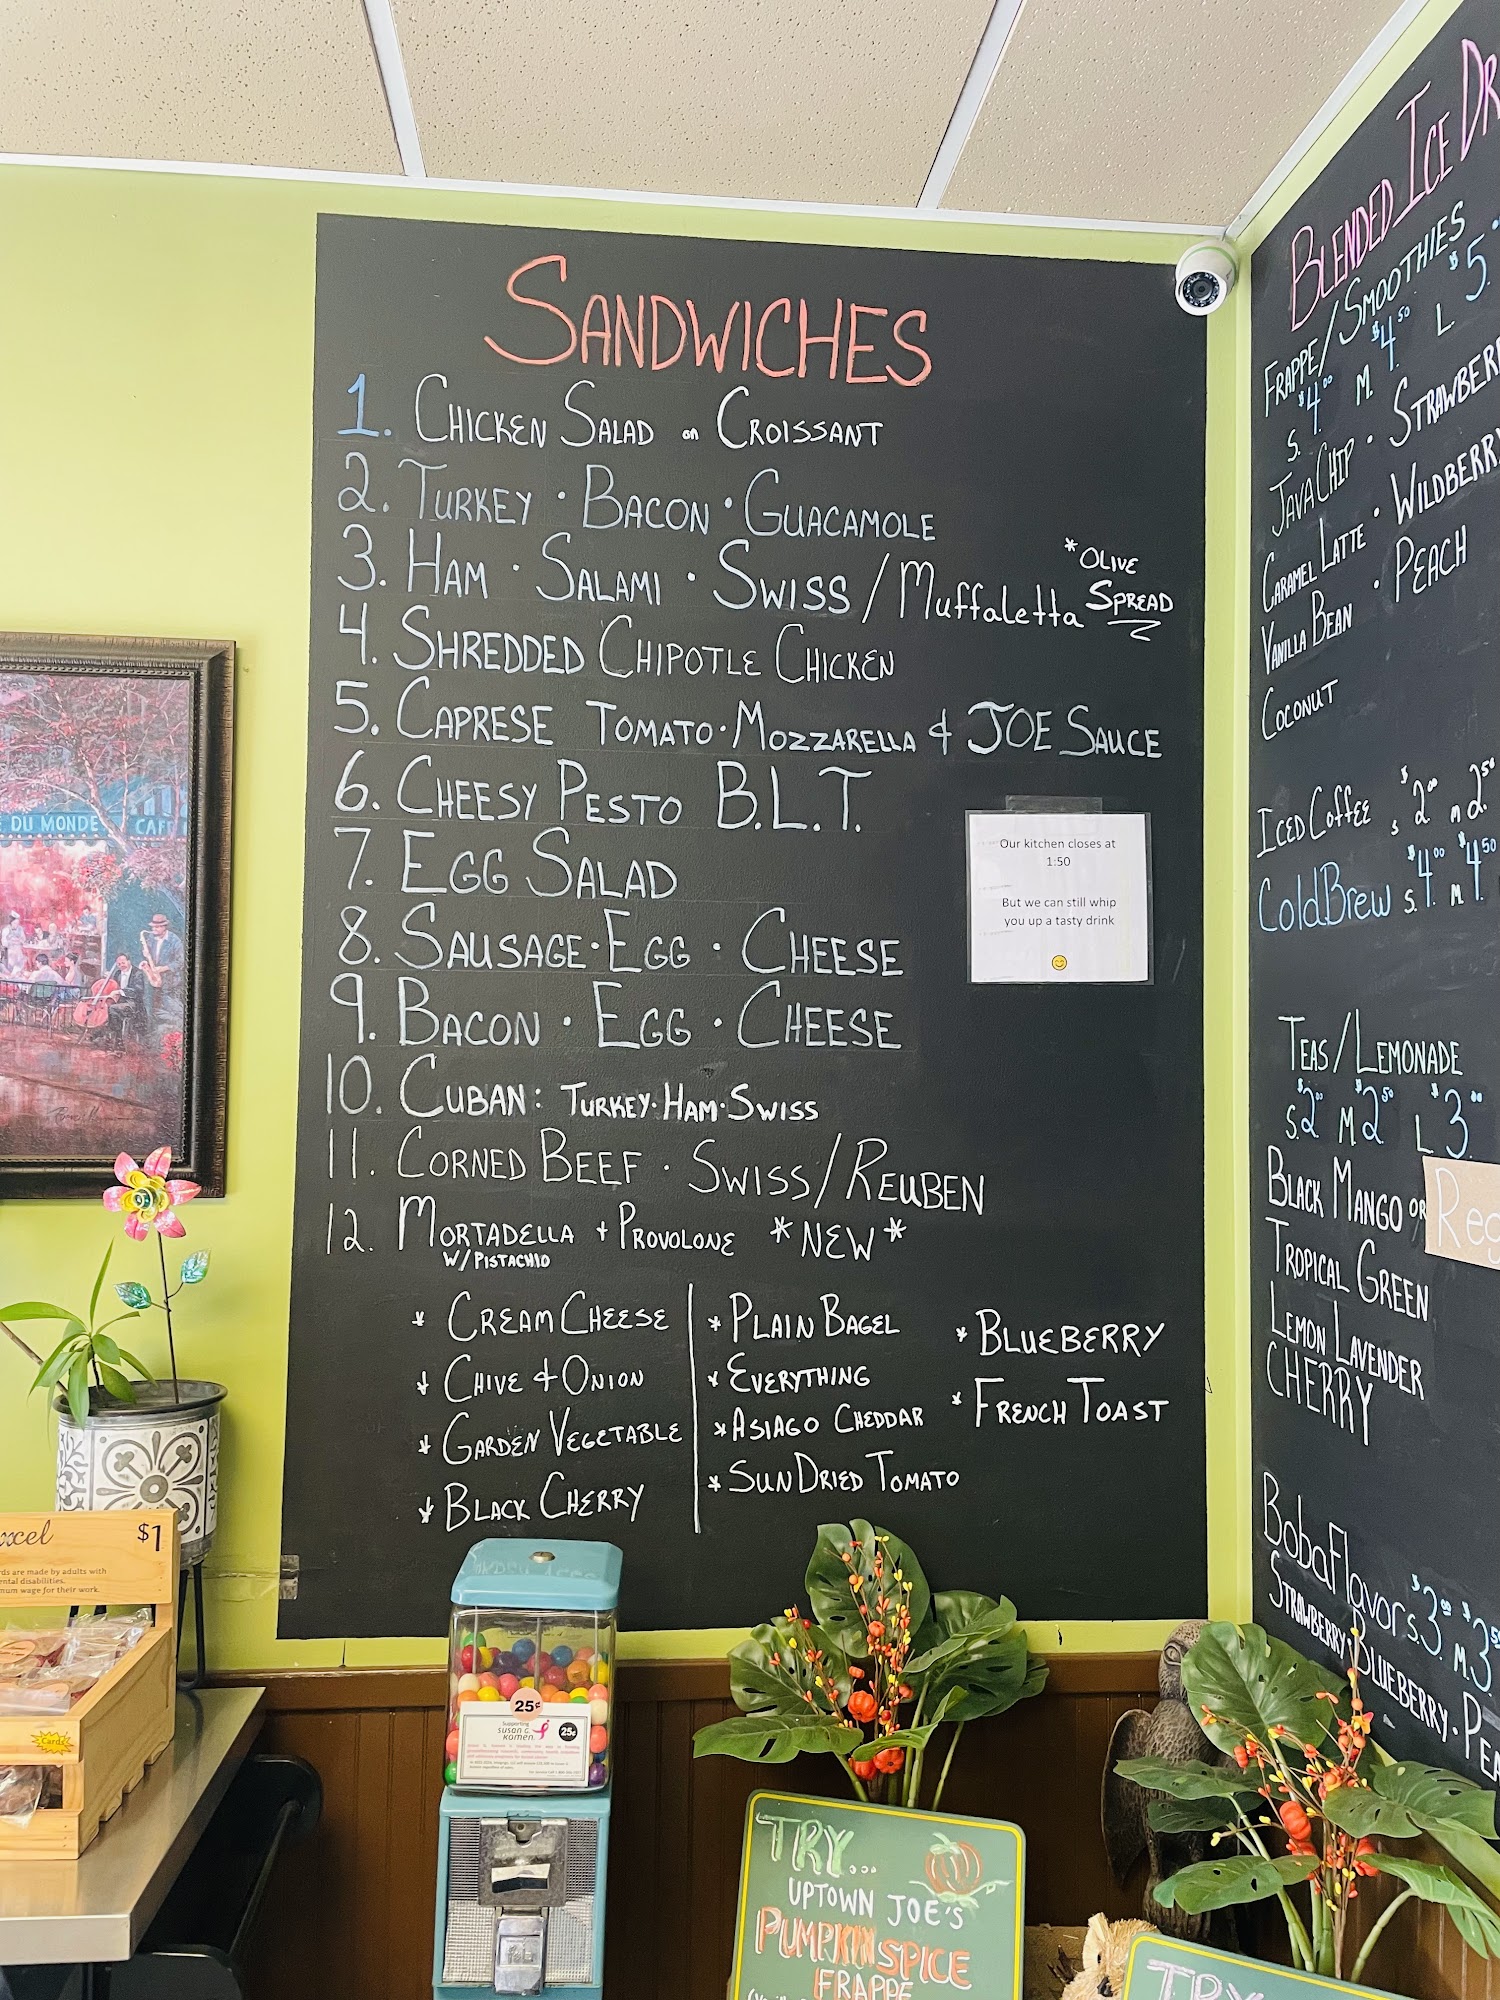 SANDWICHES
1. CHICKEN SALAD on CROISSANT
2. TURKEY · BACON · GUACAMOLE
3. HAM · SALAMI · SWISS / Muffaletta *OLIVE SPREAD
4. SHREDDED CHIPOTLE CHICKEN
5. CAPRESE TOMATO · MOZZARELLA & JOE SAUCE
6. CHEESY PESTO B.L.T.
7. EGG SALAD
8. SAUSAGE · EGG · CHEESE
9. BACON · EGG · CHEESE
10. CUBAN: TURKEY · HAM · SWISS
11. CORNED BEEF · SWISS / REUBEN
12. MORTADELLA + PROVOLONE *NEW*
W/ PISTACHIO
* CREAM CHEESE
* CHIVE & ONION
* GARDEN VEGETABLE
* BLACK CHERRY
* PLAIN BAGEL
* EVERYTHING
* ASIAGO CHEDDAR
* SUN DRIED TOMATO
* BLUEBERRY
* FRENCH TOAST
Our kitchen closes at
1:50
But we can still whip
you up a tasty drink
BLENDED ICE DR
FRAPPE/SMOOTHIES
S. $4.00 M. $4.50 L. $5.
JAVA CHIP · STRAWBER
CARAMEL LATTE · WILDBERRY
VANILLA BEAN · PEACH
COCONUT
ICED COFFEE S $2.00 M 2.50
Cold Brew S. $4.00 M. $4.50
TEAS / LEMONADE
S. $2.00 M $2.50 L $3.00
BLACK MANGO OR Reg
TROPICAL GREEN
LEMON LAVENDER
CHERRY
Boba Flavors
S. $3.00 M. $3.50
STRAWBERRY · BLUEBERRY · PEA
DU MONDE CAF
xcel $1
rds are made by adults with
ental disabilities.
mum wage for their work.
Cards
25¢
Supporting
SUSAN G.
KOMEN
25¢
TRY...
UPTOWN JOE'S
PUMPKIN SPICE
FRAPPE
TRY